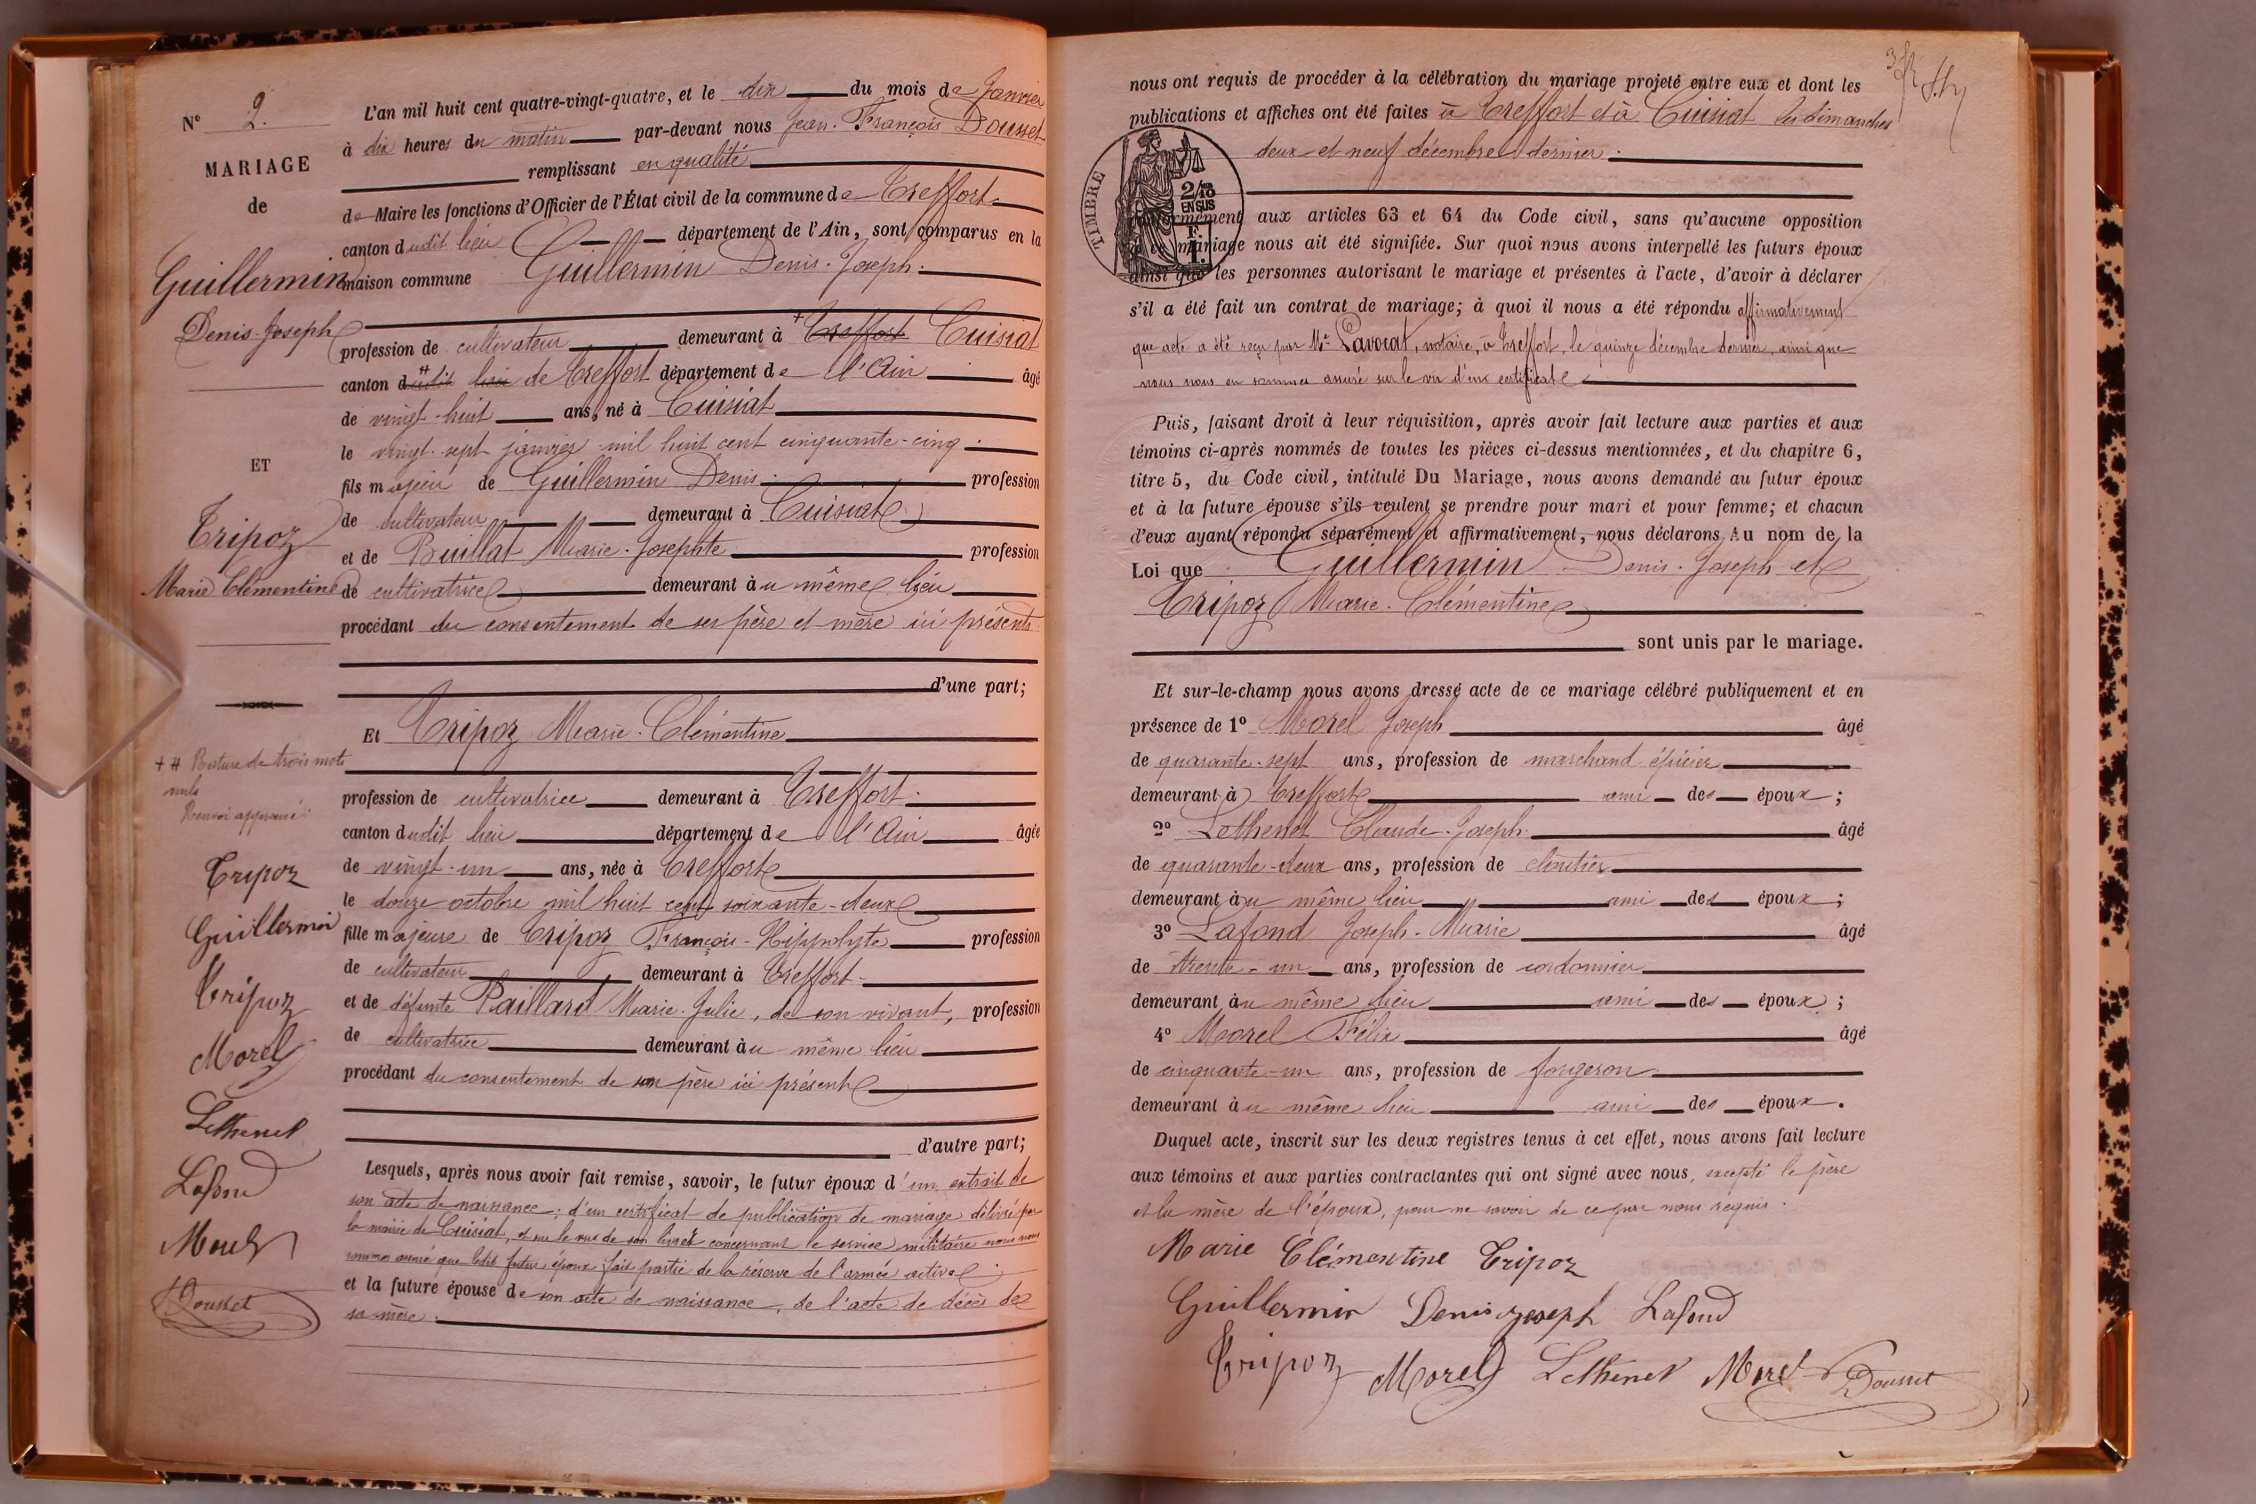 N° 2.
MARIAGE
de
Guillermin
Denis-Joseph
ET
Tripoz
Marie Clémentine
+ # Rature de trois mots
nuls
Renvoi approuvé
Tripoz
Guillermin
Tripoz
Morel
Lethenet
Lafond
Morel
Dousset
L'an mil huit cent quatre-vingt-quatre, et le dix du mois de Janvier
à dix heures du matin par-devant nous Jean-François Dousset
remplissant en qualité
de Maire les fonctions d'Officier de l'État civil de la commune de Treffort
canton dudit lieu département de l'Ain, sont comparus en la
maison commune Guillermin Denis-Joseph.
profession de cultivateur demeurant à + Treffort Cuisiat
canton d # udit lieu de Treffort département de l'Ain âgé
de vingt-huit ans, né à Cuisiat
le vingt-sept janvier mil huit cent cinquante-cinq.
fils majeur de Guillermin Denis. profession
de cultivateur demeurant à Cuisiat
et de Marie-Josephte profession
de cultivatrice demeurant au même lieu
procédant du consentement de ses père et mère ici présents
d'une part;
Et Tripoz Marie-Clémentine
profession de cultivatrice demeurant à Treffort.
canton dudit lieu département de l'Ain âgée
de vingt-un ans, née à Treffort
le douze octobre mil huit cent soixante-deux
fille majeure de Tripoz François-Hippolyte profession
de cultivateur demeurant à Treffort.
et de défunte Paillard Marie-Julie, de son vivant, profession
de cultivatrice demeurant au même lieu
procédant du consentement de son père ici présent
d'autre part;
Lesquels, après nous avoir fait remise, savoir, le futur époux d'un extrait de
son acte de naissance; d'un certificat de publication de mariage délivré par
la mairie de Cuisiat, et sur le vu de son livret concernant le service militaire nous nous
sommes assuré que ledit futur époux fait partie de la réserve de l'armée active.
et la future épouse de son acte de naissance, de l'acte de décès de
sa mère.
nous ont requis de procéder à la célébration du mariage projeté entre eux et dont les
publications et affiches ont été faites à Treffort et à Cuisiat les dimanches
deux et neuf décembre dernier.
TIMBRE
2/10es
EN SUS
conformément aux articles 63 et 64 du Code civil, sans qu'aucune opposition
à ce mariage nous ait été signifiée. Sur quoi nous avons interpellé les futurs époux
ainsi que les personnes autorisant le mariage et présentes à l'acte, d'avoir à déclarer
s'il a été fait un contrat de mariage; à quoi il nous a été répondu affirmativement
que acte a été reçu par Me Lavocat, notaire, à Treffort, le quinze décembre dernier, ainsi que
nous nous en sommes assuré sur le vu d'un certificat
Puis, faisant droit à leur réquisition, après avoir fait lecture aux parties et aux
témoins ci-après nommés de toutes les pièces ci-dessus mentionnées, et du chapitre 6,
titre 5, du Code civil, intitulé Du Mariage, nous avons demandé au futur époux
et à la future épouse s'ils veulent se prendre pour mari et pour femme; et chacun
d'eux ayant répondu séparément et affirmativement, nous déclarons Au nom de la
Loi que Guillermin Denis-Joseph et
Tripoz Marie-Clémentine
sont unis par le mariage.
Et sur-le-champ nous avons dressé acte de ce mariage célébré publiquement et en
présence de 1° Morel Joseph âgé
de quarante-sept ans, profession de marchand épicier
demeurant à Treffort ami des époux;
2° Lethenet Claude-Joseph âgé
de quarante-deux ans, profession de cloutier
demeurant au même lieu ami des époux;
3° Lafond Joseph-Marie âgé
de trente-un ans, profession de cordonnier
demeurant au même lieu ami des époux;
4° Morel Félix âgé
de cinquante-un ans, profession de forgeron
demeurant au même lieu ami des époux.
Duquel acte, inscrit sur les deux registres tenus à cet effet, nous avons fait lecture
aux témoins et aux parties contractantes qui ont signé avec nous, excepté le père
et la mère de l'époux, pour ne savoir de ce par nous requis.
Marie Clémentine Tripoz
Guillermin Denis joseph Lafond
Tripoz Morel Lethenet Morel Dousset